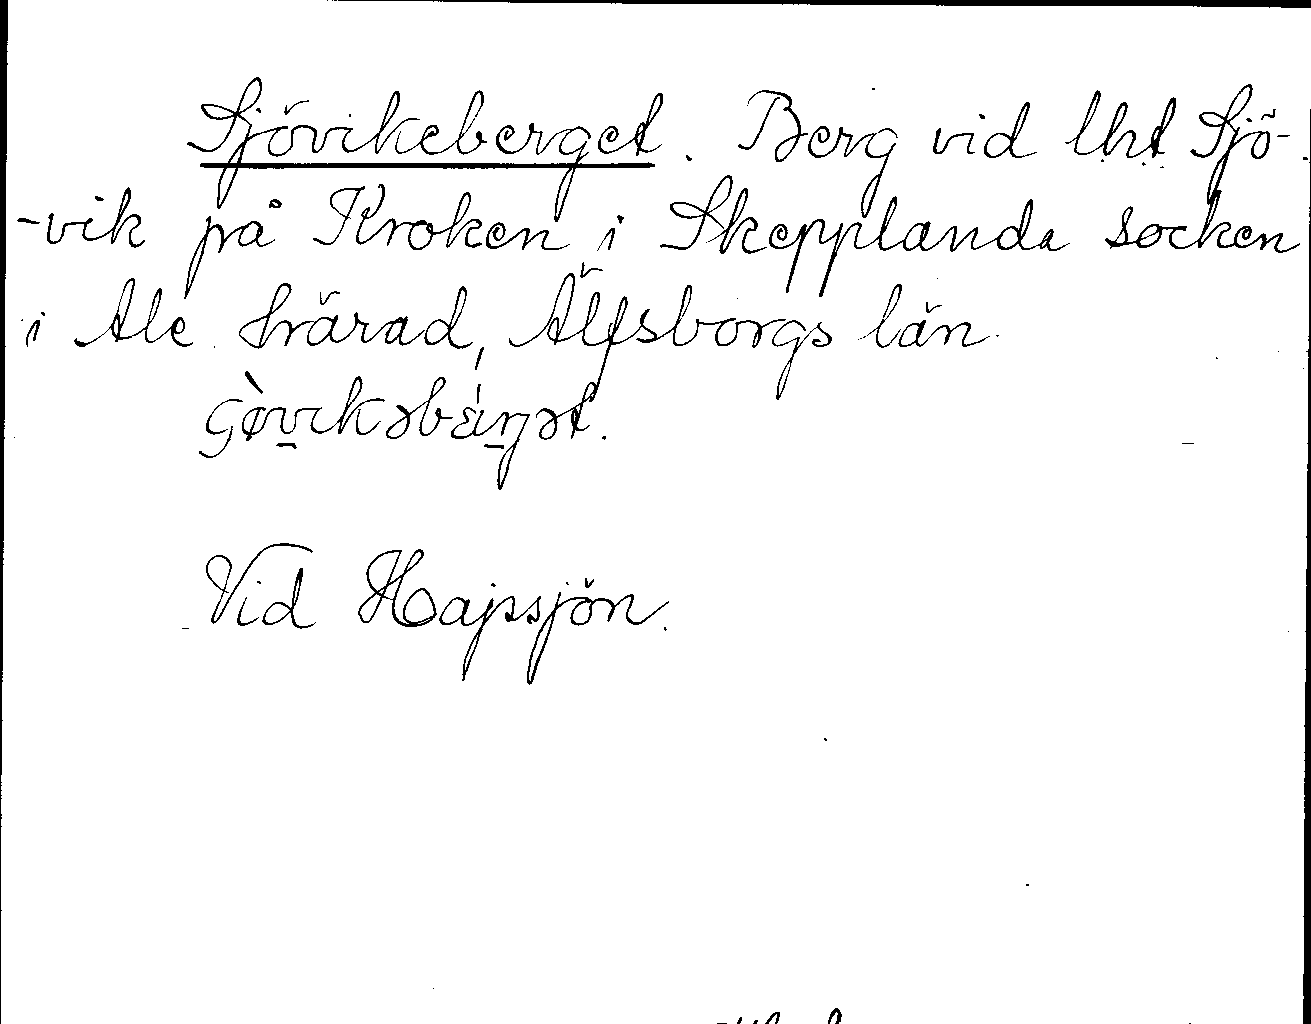 Sjövikeberget. Berg vid lht Sjö-
-vik på Kroken i Skepplanda socken
i Ale härad, Älfsborgs län.

Vid Hajssjön.